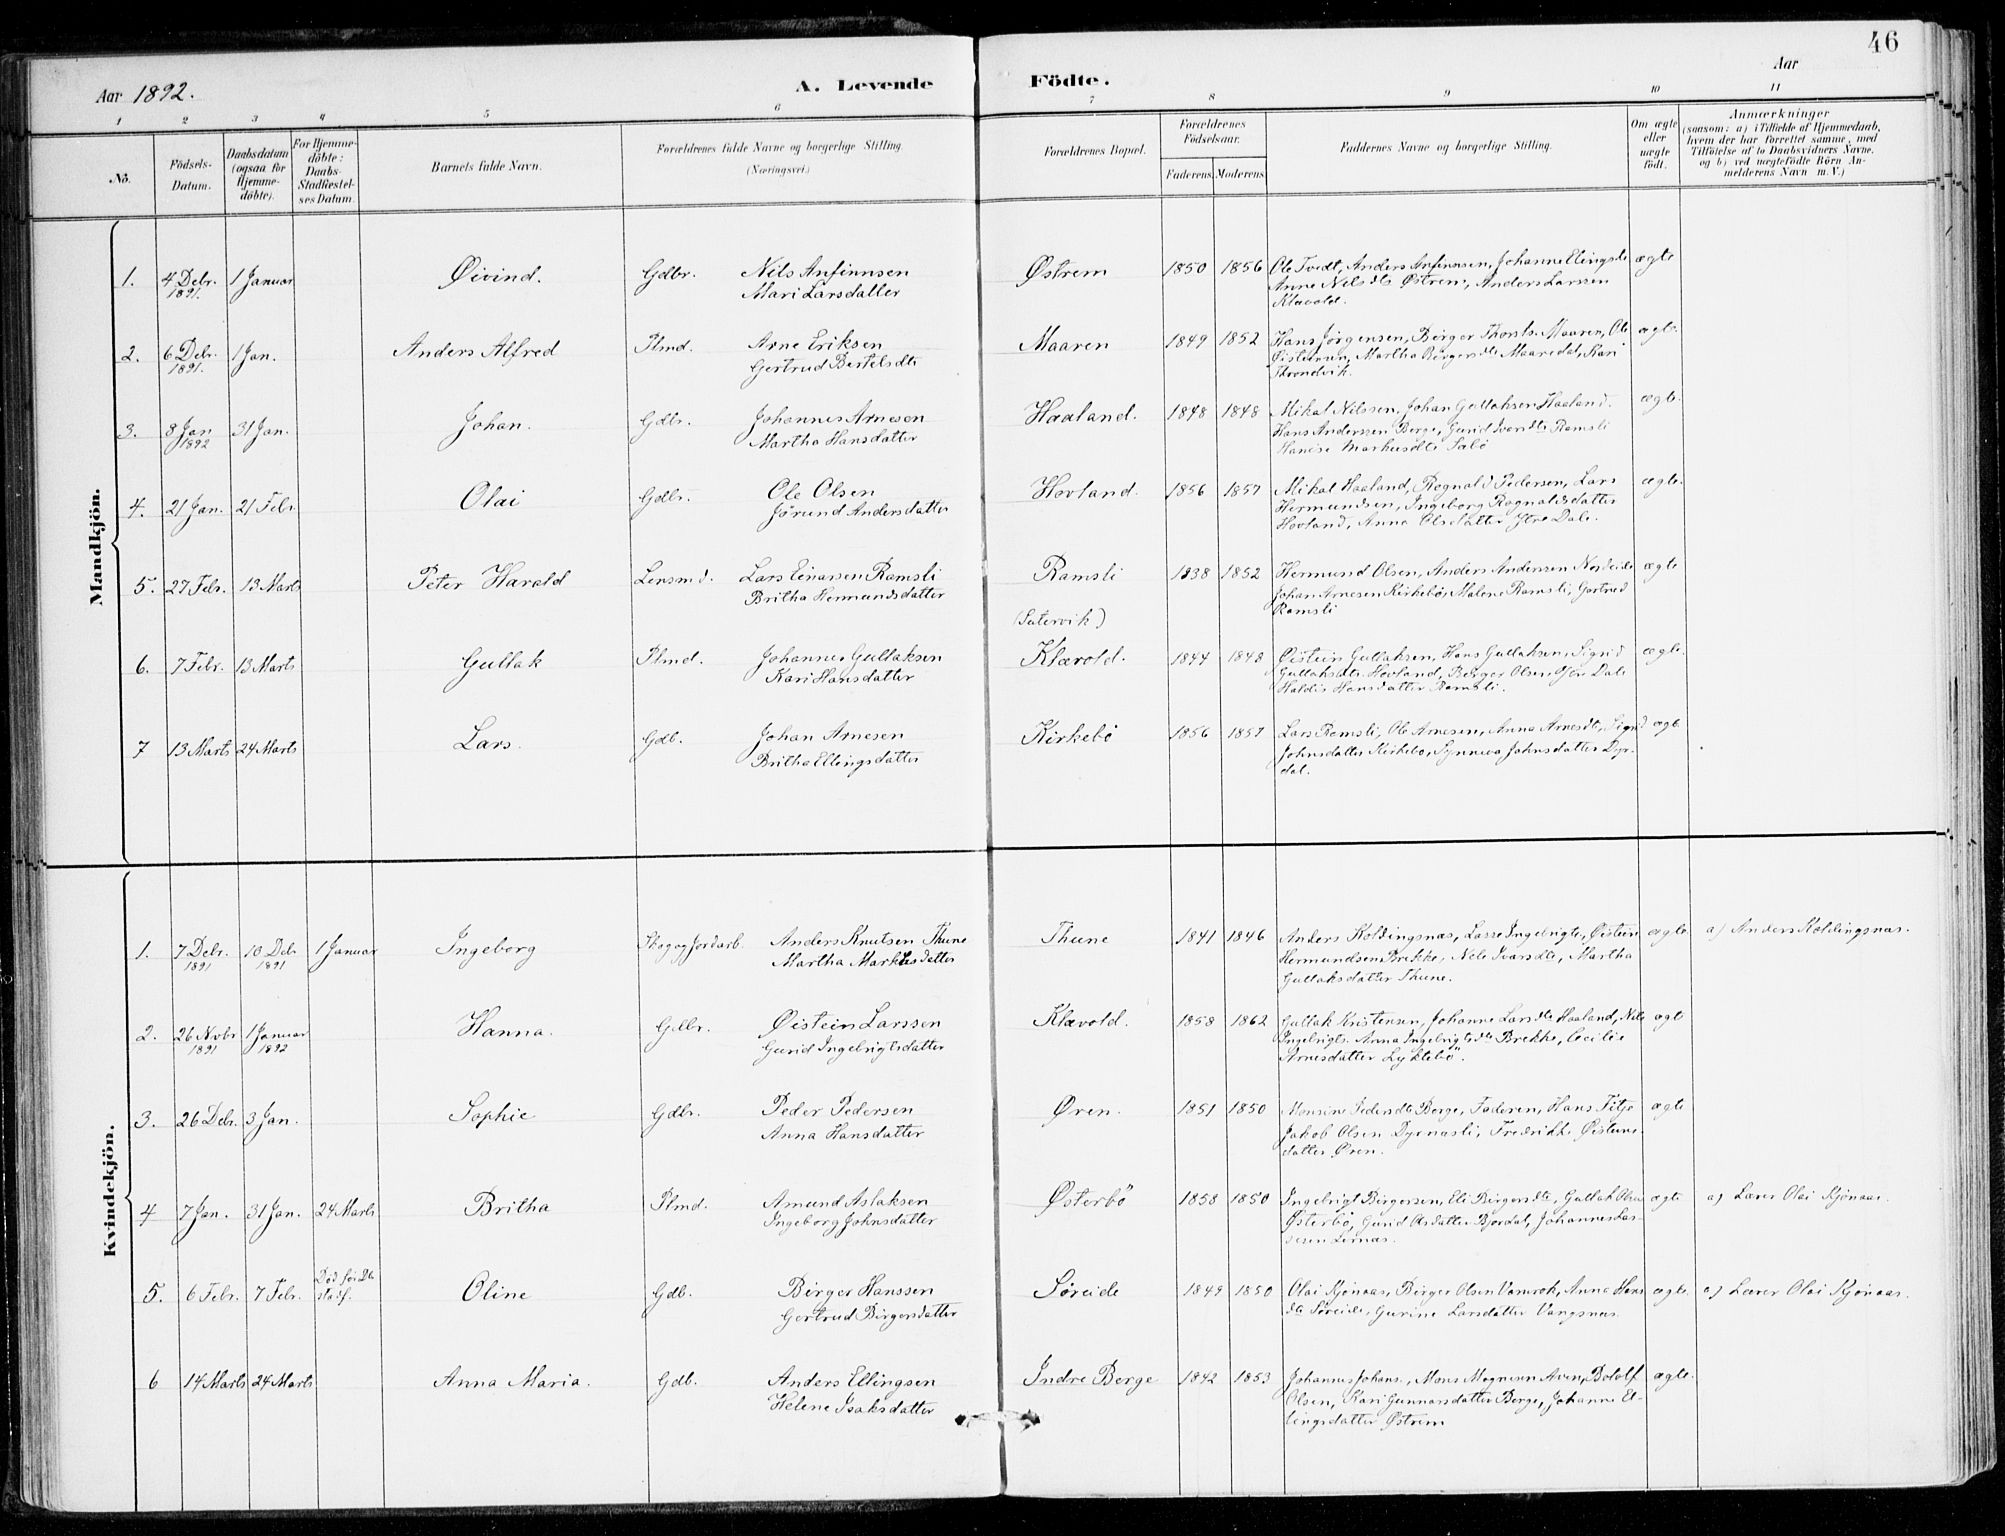 46
Aar 1892.
A. Levende Födte.
Aar
1 2 3 4 5 6 7 8 9 10 11
No.
Födsels-Datum.
Daabsdatum (ogsaa for Hjemme-döbte).
For Hjemme-döbte: Daabs-Stadfæstel-ses Datum.
Barnets fulde Navn.
Forældrenes fulde Navne og borgerlige Stilling. (Næringsvei.)
Forældrenes Bopæl.
Forældrenes Födselsaar.
Faderens. Moderens.
Faddernes Navne og borgerlige Stilling.
Om ægte eller uægte födt.
Anmærkninger
(saasom: a) i Tilfælde af Hjemmedaab,
hvem der har forrettet samme, med
Tilföielse af to Daabsvidners Navne,
og b) ved uægtefödte Börn An-
melderens Navn m. V.)
Mandkjön.
1. 4 Debr. 1891. 1 Januar Øivind. Gdbr. Nils Anfinnsen Østrem 1850 1856 Ole Tvedt, Anders Anfinnsen, Johanne Ellingsdt ægte
Mari Larsdatter Anne Nilsdtr Østrem, Anders Larssen
Klævold.
2. 6 Debr. 1891. 1 Jan. Anders Alfred Plmd. Arne Eriksen Maaren 1849 1852 Hans Jørgensen, Børger Thorsts. Maaren, Ole ægte
Gertrud Bertelsdtr Øisteinsn, Martha Børgersdtr Maaredal, Kari
Throndvik.
3. 8 Jan 1892 31 Jan. Johan. Gdbr. Johannes Arnesen Haaland. 1848 1848 Mikal Nilssen, Johan Gullaksen Haaland. ægte
Martha Hansdatter Hans Anderssen Berge, Gurid Ivarsdtr Ramsli
Hanise Markusdtr Sælø
4. 21 Jan. 21 Febr. Olai Gdbr. Ole Olsen Hovland. 1856 1857 Mikal Haaland, Ragnald Pedersen, Lars ægte
Jørund Andersdatter Hermundsen, Ingeborg Ragnaldsdatter
Hovland, Anna Olsdatter Ytre Dale.
5. 27 Febr. 13 Marts Peter Harald Lensmd. Lars Einarssen Ramsli Ramsli 1838 1852 Hermund Olsen, Anders Anderssen Nordeide ægte
Britha Hermundsdatter (Sætervik) Johan Arnesen Kirkebø, Malene Ramsli, Gertrud
Ramsli
6. 7 Febr. 13 Marts Gullak Plmd. Johannes Gullaksen Klævold. 1844 1848 Øistein Gullaksen, Hans Gullaksen, Sigrid ægte
Kari Hansdatter Gullaksdtr. Hovland, Børger Olsen Ytre Dale
Haldis Hansdatter Ramsli.
7 13 Marts 24 Marts Lars. Gdb. Johan Arnesen Kirkebø 1856 1857 Lars Ramsli, Ole Arnesen, Anna Arnesdt, Sigrid ægte
Britha Ellingsdatter Johnsdatter Kirkebø, Synneva Johnsdatter Dyr-
dal.
Kvindekjön.
1. 7 Debr. 1891 10 Debr 1891 1 Januar Ingeborg Skog og Jordarb. Anders Knutsen Thune Thune 1841 1846 Anders Koldingsnæs, Lasse Ingebrigts, Øistein ægte a) Anders Koldingsnæs.
Martha Markusdatter Hermundsen Brekke, Nele Ivarsdtr, Martha
Gullaksdatter Thune.
2. 26 Novbr 1891 1 Januar 1892 Hanna. Gdbr. Øistein Larssen Klævold. 1858 1862 Gullak Kristensen, Johanne Larsdtr Haaland, Nils ægte
Gurid Ingebrigtsdatter Ingebrigts. Anna Ingebrigtsdtr Brekke, Cecilie
Arnesdatter Lyklebø.
3. 26 Debr. 3 Jan. Sophie Gdbr. Peder Pedersen Øren. 1851 1850 Monsine Pedersdtr Berge, Faderen, Hans Titje ægte
Anna Hansdatter Jakob Olsen Dyrnæsli, Fredrikke Øisteins-
datter Øren.
4 7 Jan. 31 Jan. 24 Marts Britha Plmd. Amund Aslaksen Østerbö 1858 1850 Ingebrigt Børgersen, Eli Børgersdtr, Gullak Olsen ægte a) Lærer Olai Kjönaas.
Ingeborg Johnsdatter Østerbø, Gurid Olsdatter Bjordal, Johannes Las-
sesen Lernæs.
5. 6 Febr. 7 Febr. Död för Db. stadf. Oline Gdb. Börger Hanssen Söreide 1849 1850 Olai Kjönaas, Børger Olsen Vamrok, Anna Hans ægte a) Lærer Olai Kjönaas.
Gertrud Börgersdatter dtr Søreide, Gurine Larsdatter Vangsnæs.
6 14 Marts 24 Marts Anna Maria. Gdb. Anders Ellingsen Indre Berge 1842 1853 Johannes Johans., Mons Magnesen Aven, Botolf ægte
Helene Isaksdatter Olsen, Kari Gunnarsdatter Berge, Johanne El-
lingsdatter Østrem